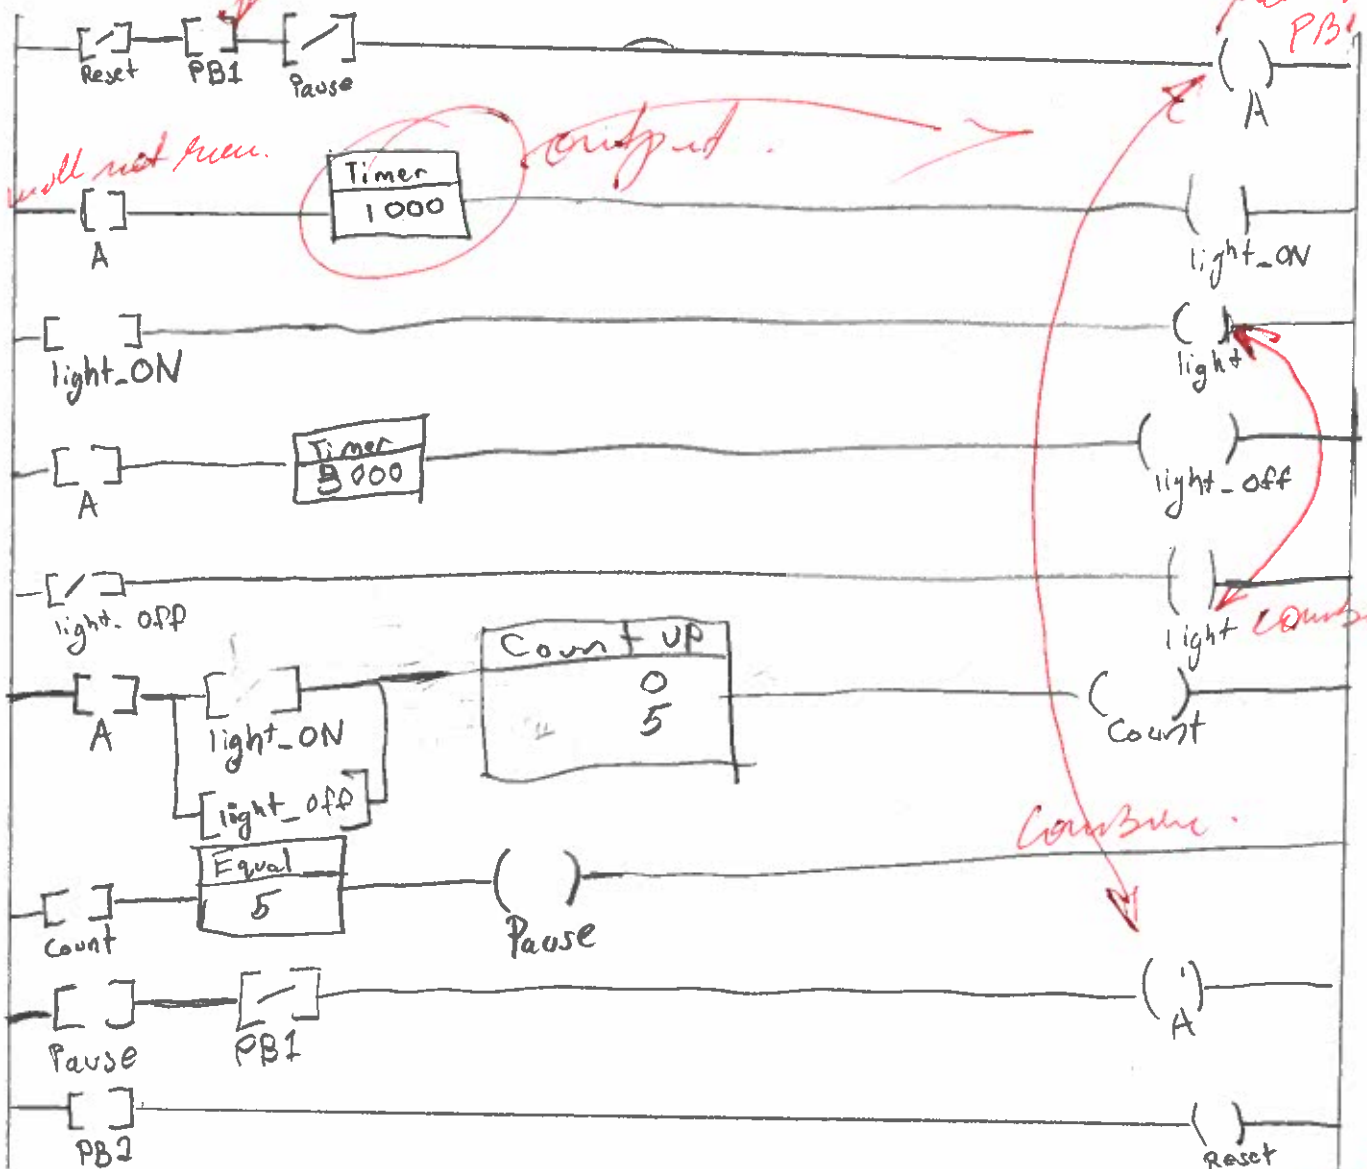 Reset PB1 Pause
A
PB1
will not run.
output.
Timer
1000
A
light_ON
light_ON
light
Timer
3000
A
light_off
light_off
light
Count UP
0
5
A
light_ON
light_off
Count
Combine.
Equal
5
Count
Pause
Pause PB1
A
PB2
Reset